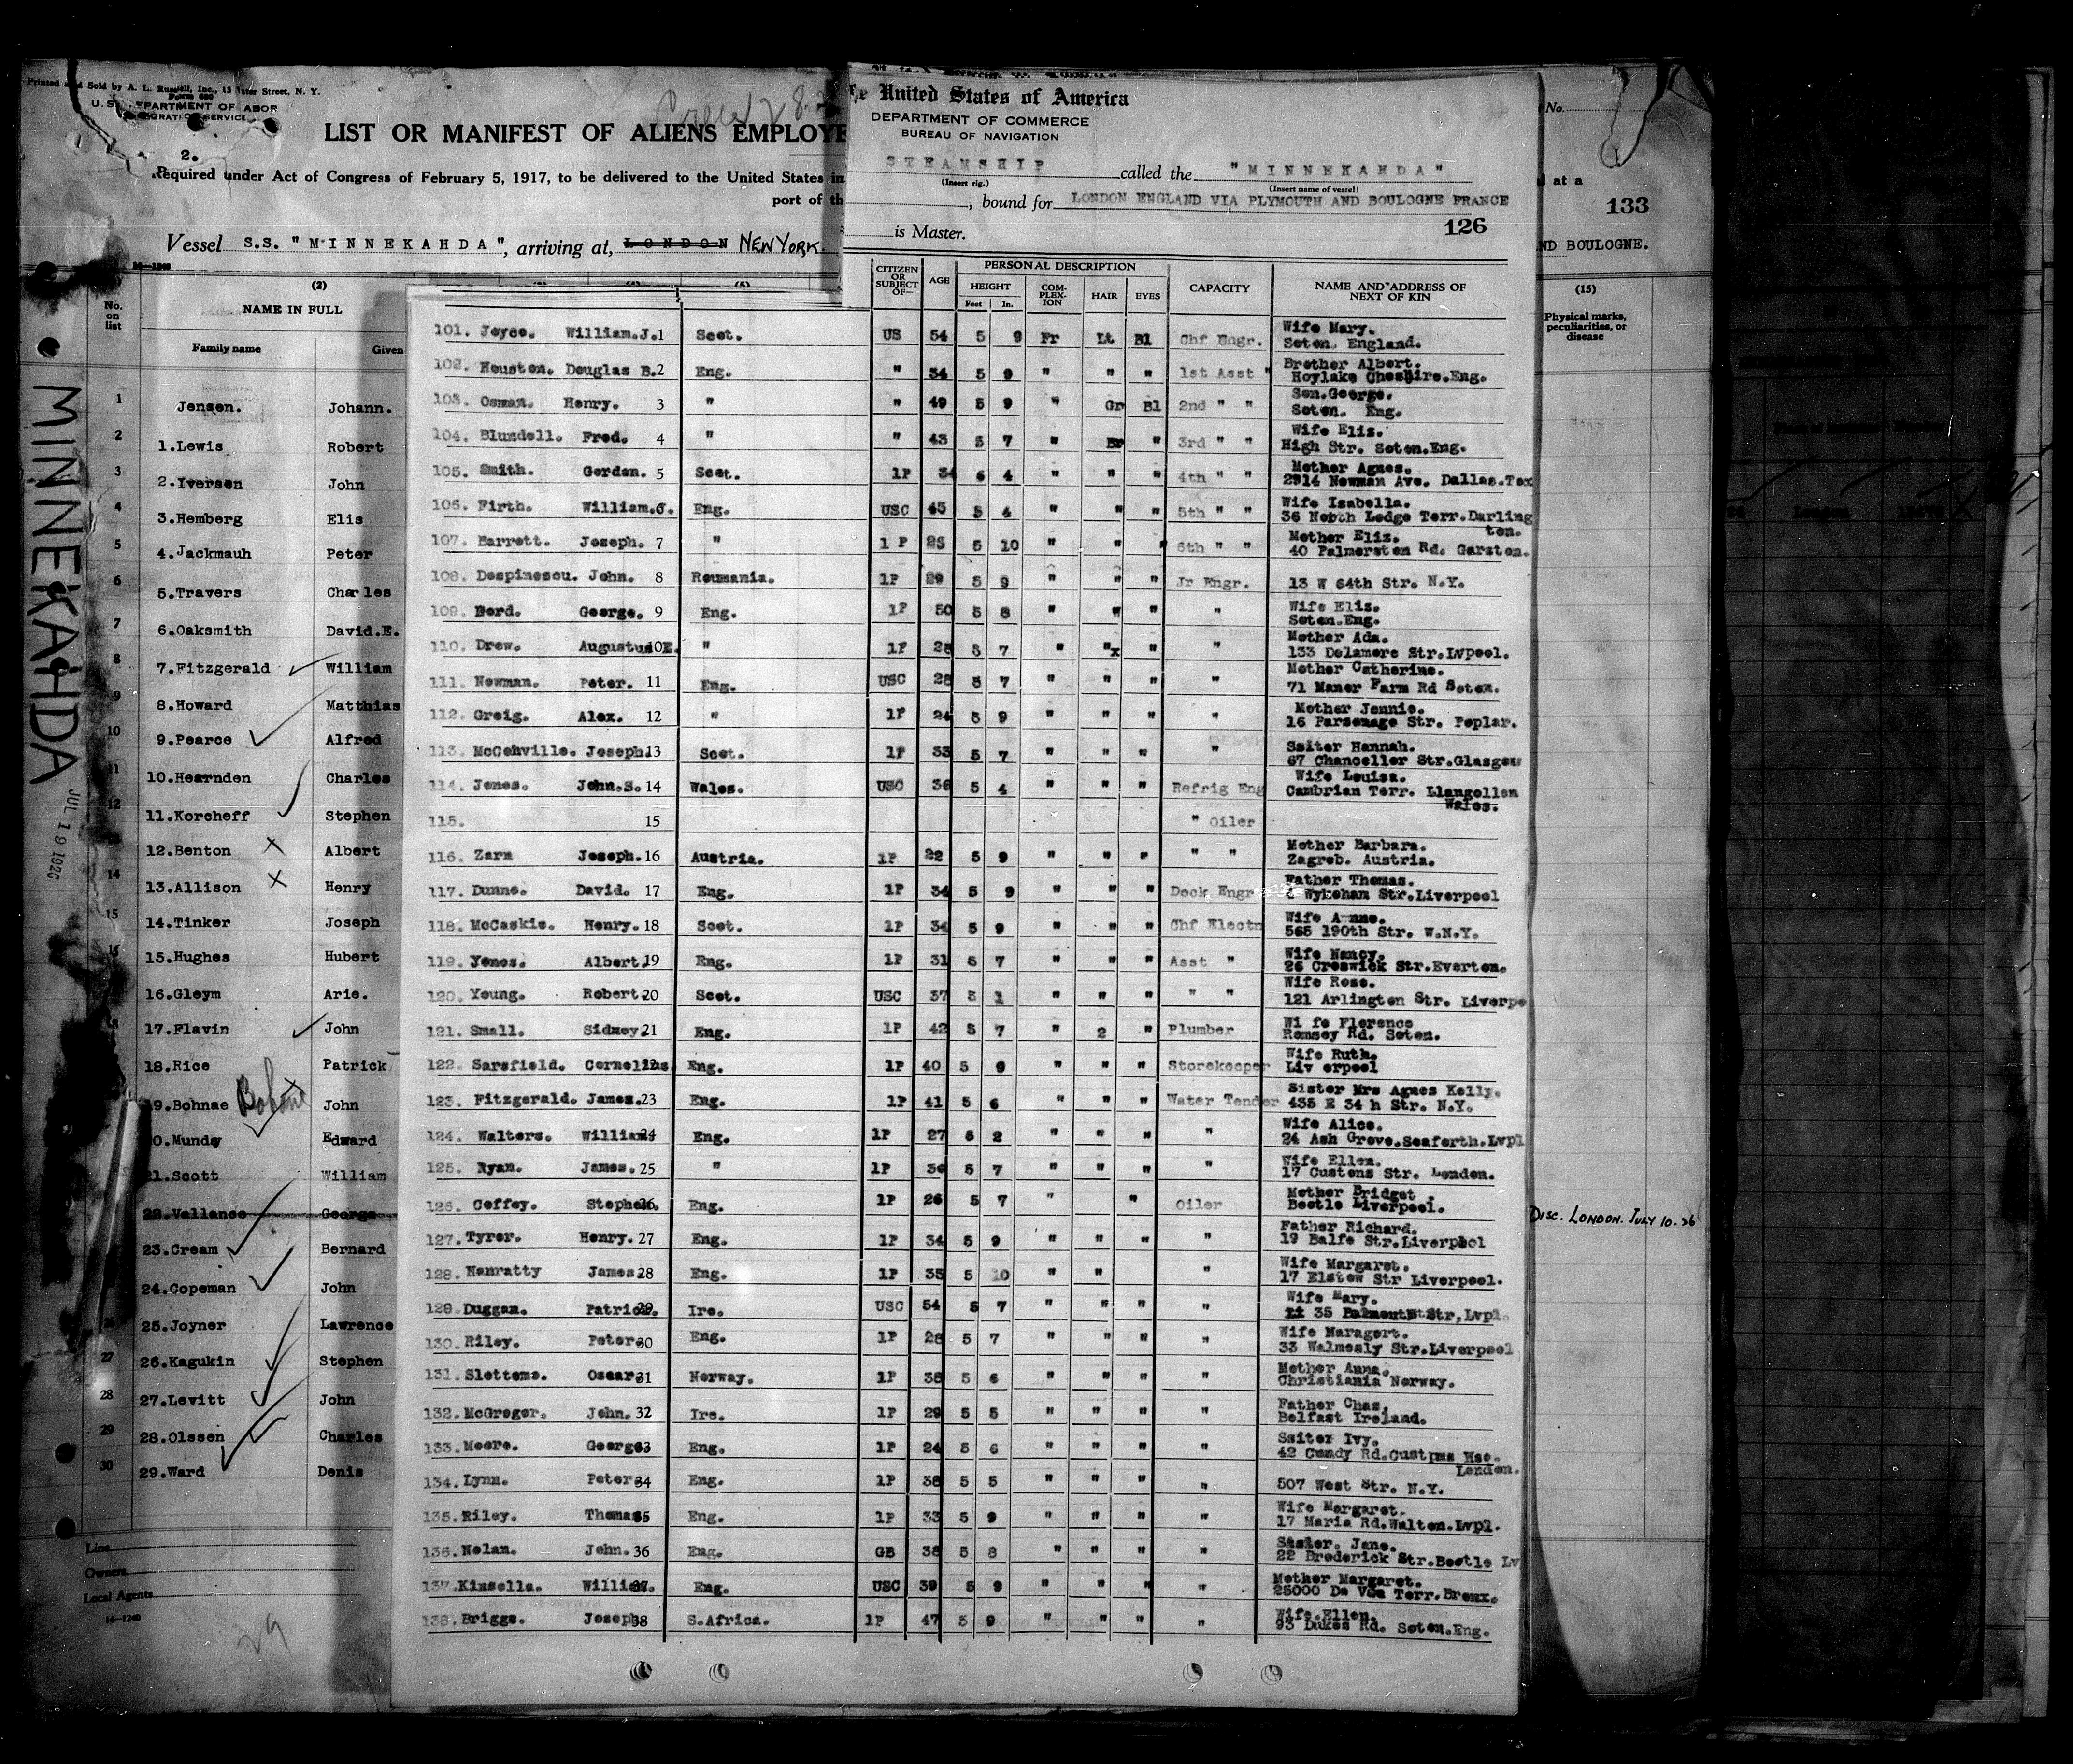 Printed and Sold by A. L. Russell, Inc., 13 Water Street, N. Y.
Form 680
LIST OR MANIFEST OF ALIENS EMPLOYE
2.
Required under Act of Congress of February 5, 1917, to be delivered to the United States
port of th
Vessel S.S. "MINNEKAHDA", arriving at, LONDON NEW YORK.
United States of America
DEPARTMENT OF COMMERCE
BUREAU OF NAVIGATION
STEAMSHIP called the "MINNEKAHDA"
(Insert rig.) (Insert name of vessel)
, bound for LONDON ENGLAND VIA PLYMOUTH AND BOULOGNE FRANCE
is Master. 126
No.
at a
133
ND BOULOGNE.
(15)
Physical marks, peculiarities, or disease
MINNEKAHDA
No. on list
(2)
NAME IN FULL
Family name Given
1 Jensen. Johann.
2 1.Lewis Robert
3 2.Iversen John
4 3.Hemberg Elis
5 4.Jackmauh Peter
6 5.Travers Charles
7 6.Oaksmith David.E.
8 7.Fitzgerald William
9 8.Howard Matthias
10 9.Pearce Alfred
11 10.Hearnden Charles
12 11.Korcheff Stephen
12.Benton Albert
14 13.Allison Henry
15 14.Tinker Joseph
15.Hughes Hubert
16.Gleym Arie.
17.Flavin John
18.Rice Patrick
9.Bohnae John
0.Mundy Edward
1.Scott William
22.Vallance George
23.Cream Bernard
24.Copeman John
25.Joyner Lawrence
27 26.Kagukin Stephen
28 27.Levitt John
29 28.Olssen Charles
30 29.Ward Denis
Line
Owners
Local Agents
16—1240
29
CITIZEN OR SUBJECT OF— AGE PERSONAL DESCRIPTION CAPACITY NAME AND ADDRESS OF NEXT OF KIN
HEIGHT COM-PLEX-ION HAIR EYES
Feet In.
101. Joyce. William.J.1 Scot. US 54 5 9 Fr Lt Bl Chf Engr. Wife Mary.
Soton. England.
102. Houston. Douglas B.2 Eng. " 34 5 9 " " " 1st Asst " Brother Albert.
Hoylake Cheshire.Eng.
103. Osman. Henry. 3 " " 49 5 9 " Gr Bl 2nd " " Son.George.
Soton. Eng.
104. Blundell. Fred. 4 " " 43 5 7 " Br " 3rd " " Wife Eliz.
High Str. Soton.Eng.
105. Smith. Gordan. 5 Scot. 1P 34 6 4 " " " 4th " " Mother Agnes.
2914 Newman Ave. Dallas.Tex
106. Firth. William.J. 6 Eng. USC 45 5 4 " " " 5th " " Wife Isabella.
36 North Lodge Terr.Darling
ton.
107. Barrett. Joseph. 7 " 1 P 25 5 10 " " " 6th " " Mother Eliz.
40 Palmerston Rd. Garston.
108. Despinescu. John. 8 Roumania. 1P 29 5 9 " " " Jr Engr. 13 W 64th Str. N.Y.
109. Bord. George. 9 Eng. 1P 50 5 8 " " " " Wife Eliz.
Soton.Eng.
110. Drew. Augustus E. 10 " 1P 28 5 7 " "x " " Mother Ada.
133 Delamere Str.Lvpool.
111. Newman. Peter. 11 Eng. USC 28 5 7 " " " " Mother Catherine.
71 Manor Farm Rd Soton.
112. Greig. Alex. 12 " 1P 24 5 9 " " " " Mother Jennie.
16 Parsonage Str. Poplar.
113. McConville. Joseph.13 Scot. 1P 33 5 7 " " " " Ssiter Hannah.
67 Chancellor Str.Glasgow
114. Jones. John.S. 14 Wales. USC 36 5 4 " " " Refrig Eng Wife Louisa.
Cambrian Terr. Llangollen
Wales.
115. 15 " Oiler
116. Zarn Joseph. 16 Austria. 1P 22 5 9 " " " " " Mother Barbara.
Zagreb. Austria.
117. Dunne. David. 17 Eng. 1P 34 5 9 " " " Deck Engr Father Thomas.
Wykeham Str.Liverpool
118. McCaskie. Henry. 18 Scot. 1P 34 5 9 " " Chf Electn Wife Annne.
565 190th Str. W.N.Y.
119. Yenos. Albert 19 Eng. 1P 31 5 7 " " " Asst " Wife Nancy.
26 Creswick Str.Everton.
120. Young. Robert 20 Scot. USC 37 5 1 " " " " " Wife Rose.
121 Arlington Str. Liverpo
121. Small. Sidney 21 Eng. 1P 42 5 7 " 2 " Plumber Wi fe Florence
Romsey Rd. Soton.
122. Sarsfield. Cornelius. 22 Eng. 1P 40 5 9 " " " Storekeeper Wife Ruth.
Liv erpool
123. Fitzgerald. James.23 Eng. 1P 41 5 6 " " " Water Tender Sister Mrs Agnes Kelly.
435 E 34 h Str. N.Y.
124. Walters. William 24 Eng. 1P 27 5 2 " " " " Wife Alice.
24 Ash Grove.Seaforth.Lvpl
125. Ryan. James. 25 " 1P 36 5 7 " " " " Wife Ellen.
17 Customs Str. London.
126. Coffey. Stephen. 26 Eng. 1P 26 5 7 " " Oiler Mother Bridget.
Bootle Liverpool.
127. Tyrer. Henry. 27 Eng. 1P 34 5 9 " " " " Father Richard.
19 Balfe Str.Liverpool
128. Hanratty James 28 Eng. 1P 35 5 10 " " " Wife Margaret.
17 Elstow Str Liverpool.
129. Duggan. Patrick. 29 Ire. USC 54 5 7 " " " " Wife Mary.
35 Str,Lvpl.
130. Riley. Peter 30 Eng. 1P 28 5 7 " " " " Wife Maragert.
33 Walmesly Str.Liverpool
131. Slettems. Oscar 31 Norway. 1P 38 5 6 " " " " Mother Anna.
Christiania Norway.
132. McGregor. John. 32 Ire. 1P 29 5 5 " " " " Father Chas.
Belfast Ireland.
133. Moore. George 33 Eng. 1P 24 5 6 " " " " Ssiter Ivy.
42 Cundy Rd.Custpms Hse.
London.
134. Lynn. Peter 34 Eng. 1P 38 5 5 " " " " 507 West Str. N.Y.
135. Riley. Thomas 35 Eng. 1P 33 5 9 " " " " Wife Margaret.
17 Maria Rd.Walton.Lvpl.
136. Nolan. John. 36 Eng. GB 38 5 8 " " " " Sister. Jane.
22 Broderick Str.Bootle Lv
137. Kinsella. William. 37 Eng. USC 39 5 9 " " " " Mother Margaret.
25000 De Voe Terr.Bronx.
138. Briggs. Joseph 38 S.Africa. 1P 47 5 9 " " " " Wife.Ellen.
93 Dukes Rd. Soton.Eng.
DISC. LONDON. JULY 10. 26